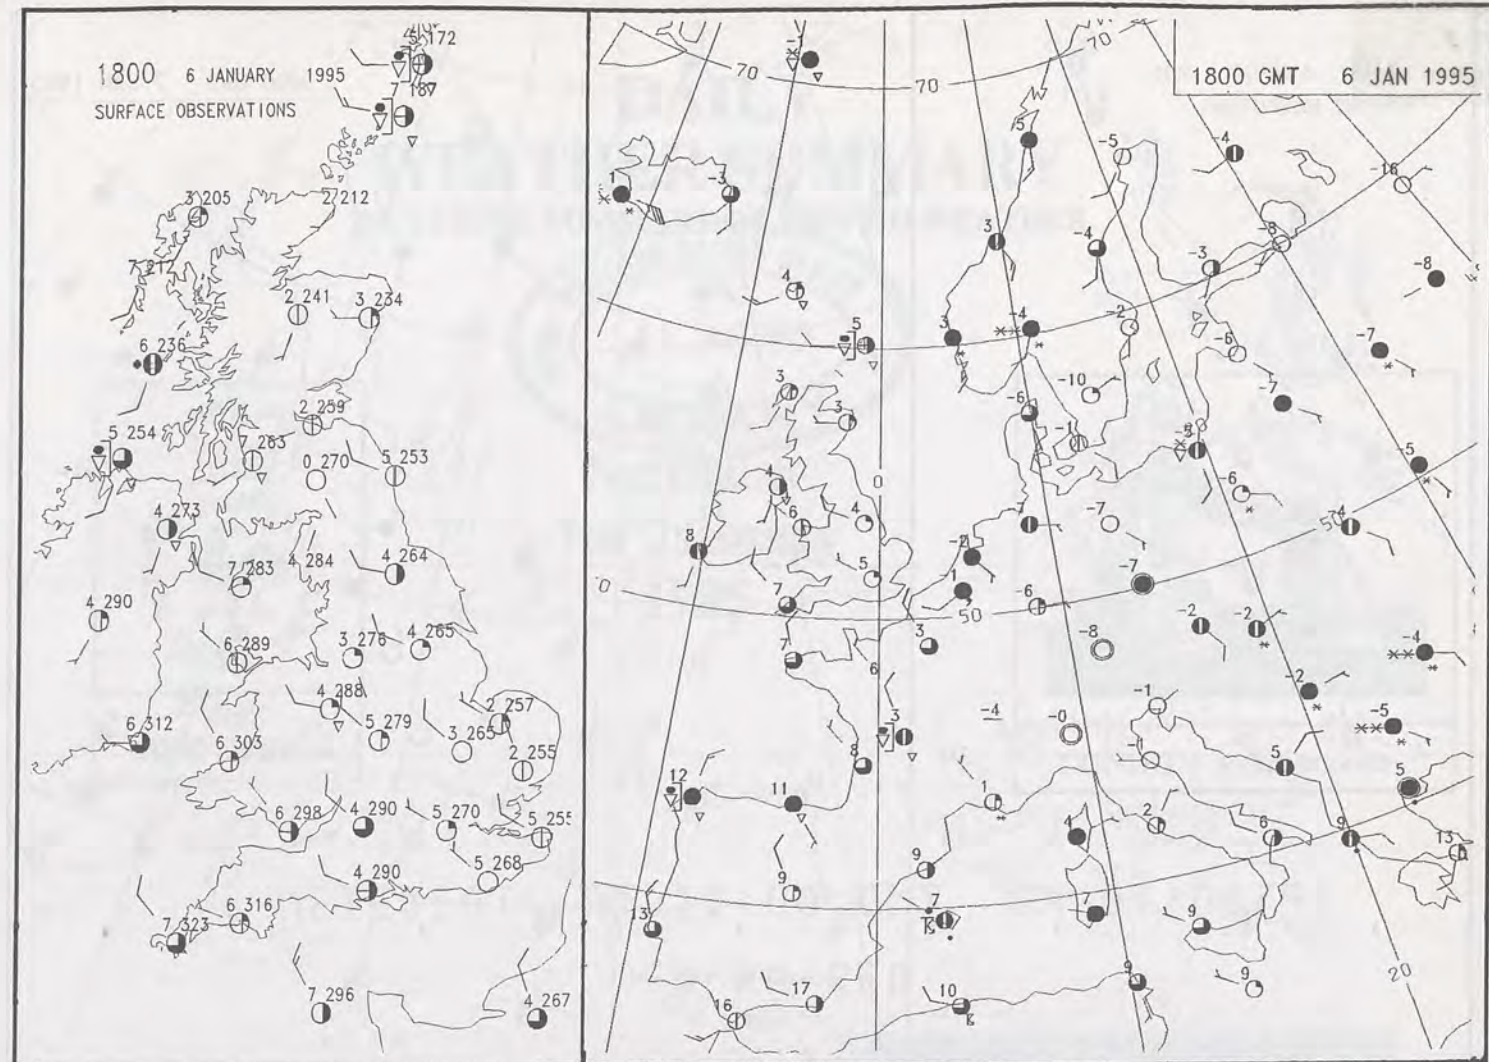 1800 6 JANUARY 1995
SURFACE OBSERVATIONS
172
7 187
3 205
2 212
7 217
2 241
3 234
6 236
2 259
5 254
7 263
0 270
5 253
4 273
4 284
4 264
7 283
4 290
6 289
3 276
4 265
4 288
2 257
6 312
5 279
3 265
6 303
2 255
6 298
4 290
5 270
5 255
4 290
5 268
6 316
7 323
7 296
4 267
1800 GMT 6 JAN 1995
-1
70
70
70
5
-5
-4
-16
1
-3
3
-4
-3
-3
-8
4
5
3
-4
-2
-6
-7
3
3
-10
-7
-6
-1
-5
-5
0
4
6
4
-6
50
8
7
-7
-4
-2
5
1
-7
0
7
50
-6
-2
-2
7
3
-8
-4
6
-2
3
-4
-0
-1
-5
8
-1
5
5
12
11
1
4
2
6
9
13
9
9
7
7
9
13
20
16
17
10
9
9